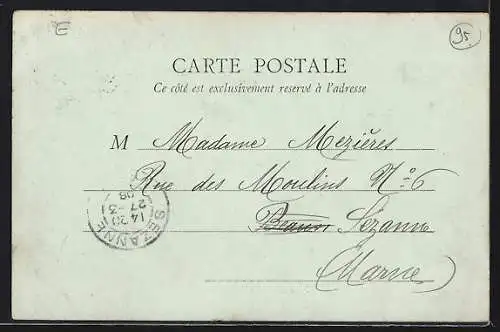 E
95
CARTE POSTALE
Ce côté est exclusivement reservé à l'adresse
M Madame Mezières
Rue des Moulins Nº 6
Sezanne
Marne)
SEZANNE
14 20
27-3
08